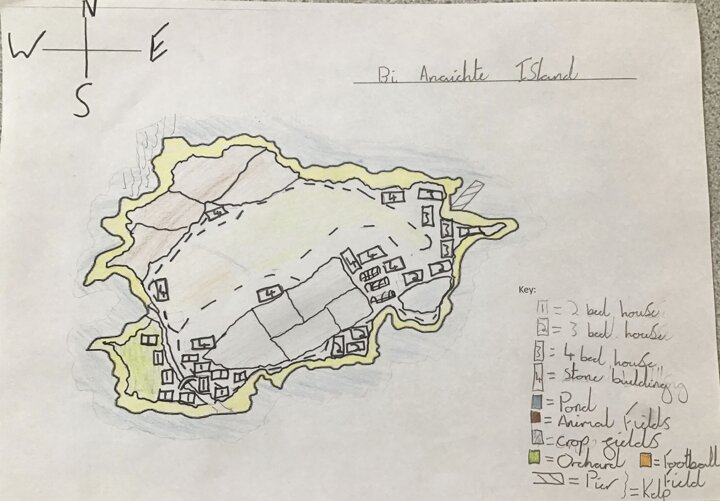 N
W E
S
Bi Anaichte Island
Key:
1 = 2 bed house
2 = 3 bed house
3 = 4 bed house
4 = Stone building
= Pond
= Animal Fields
= Crop fields
= Orchard = Football Field
= Pier = Kelp